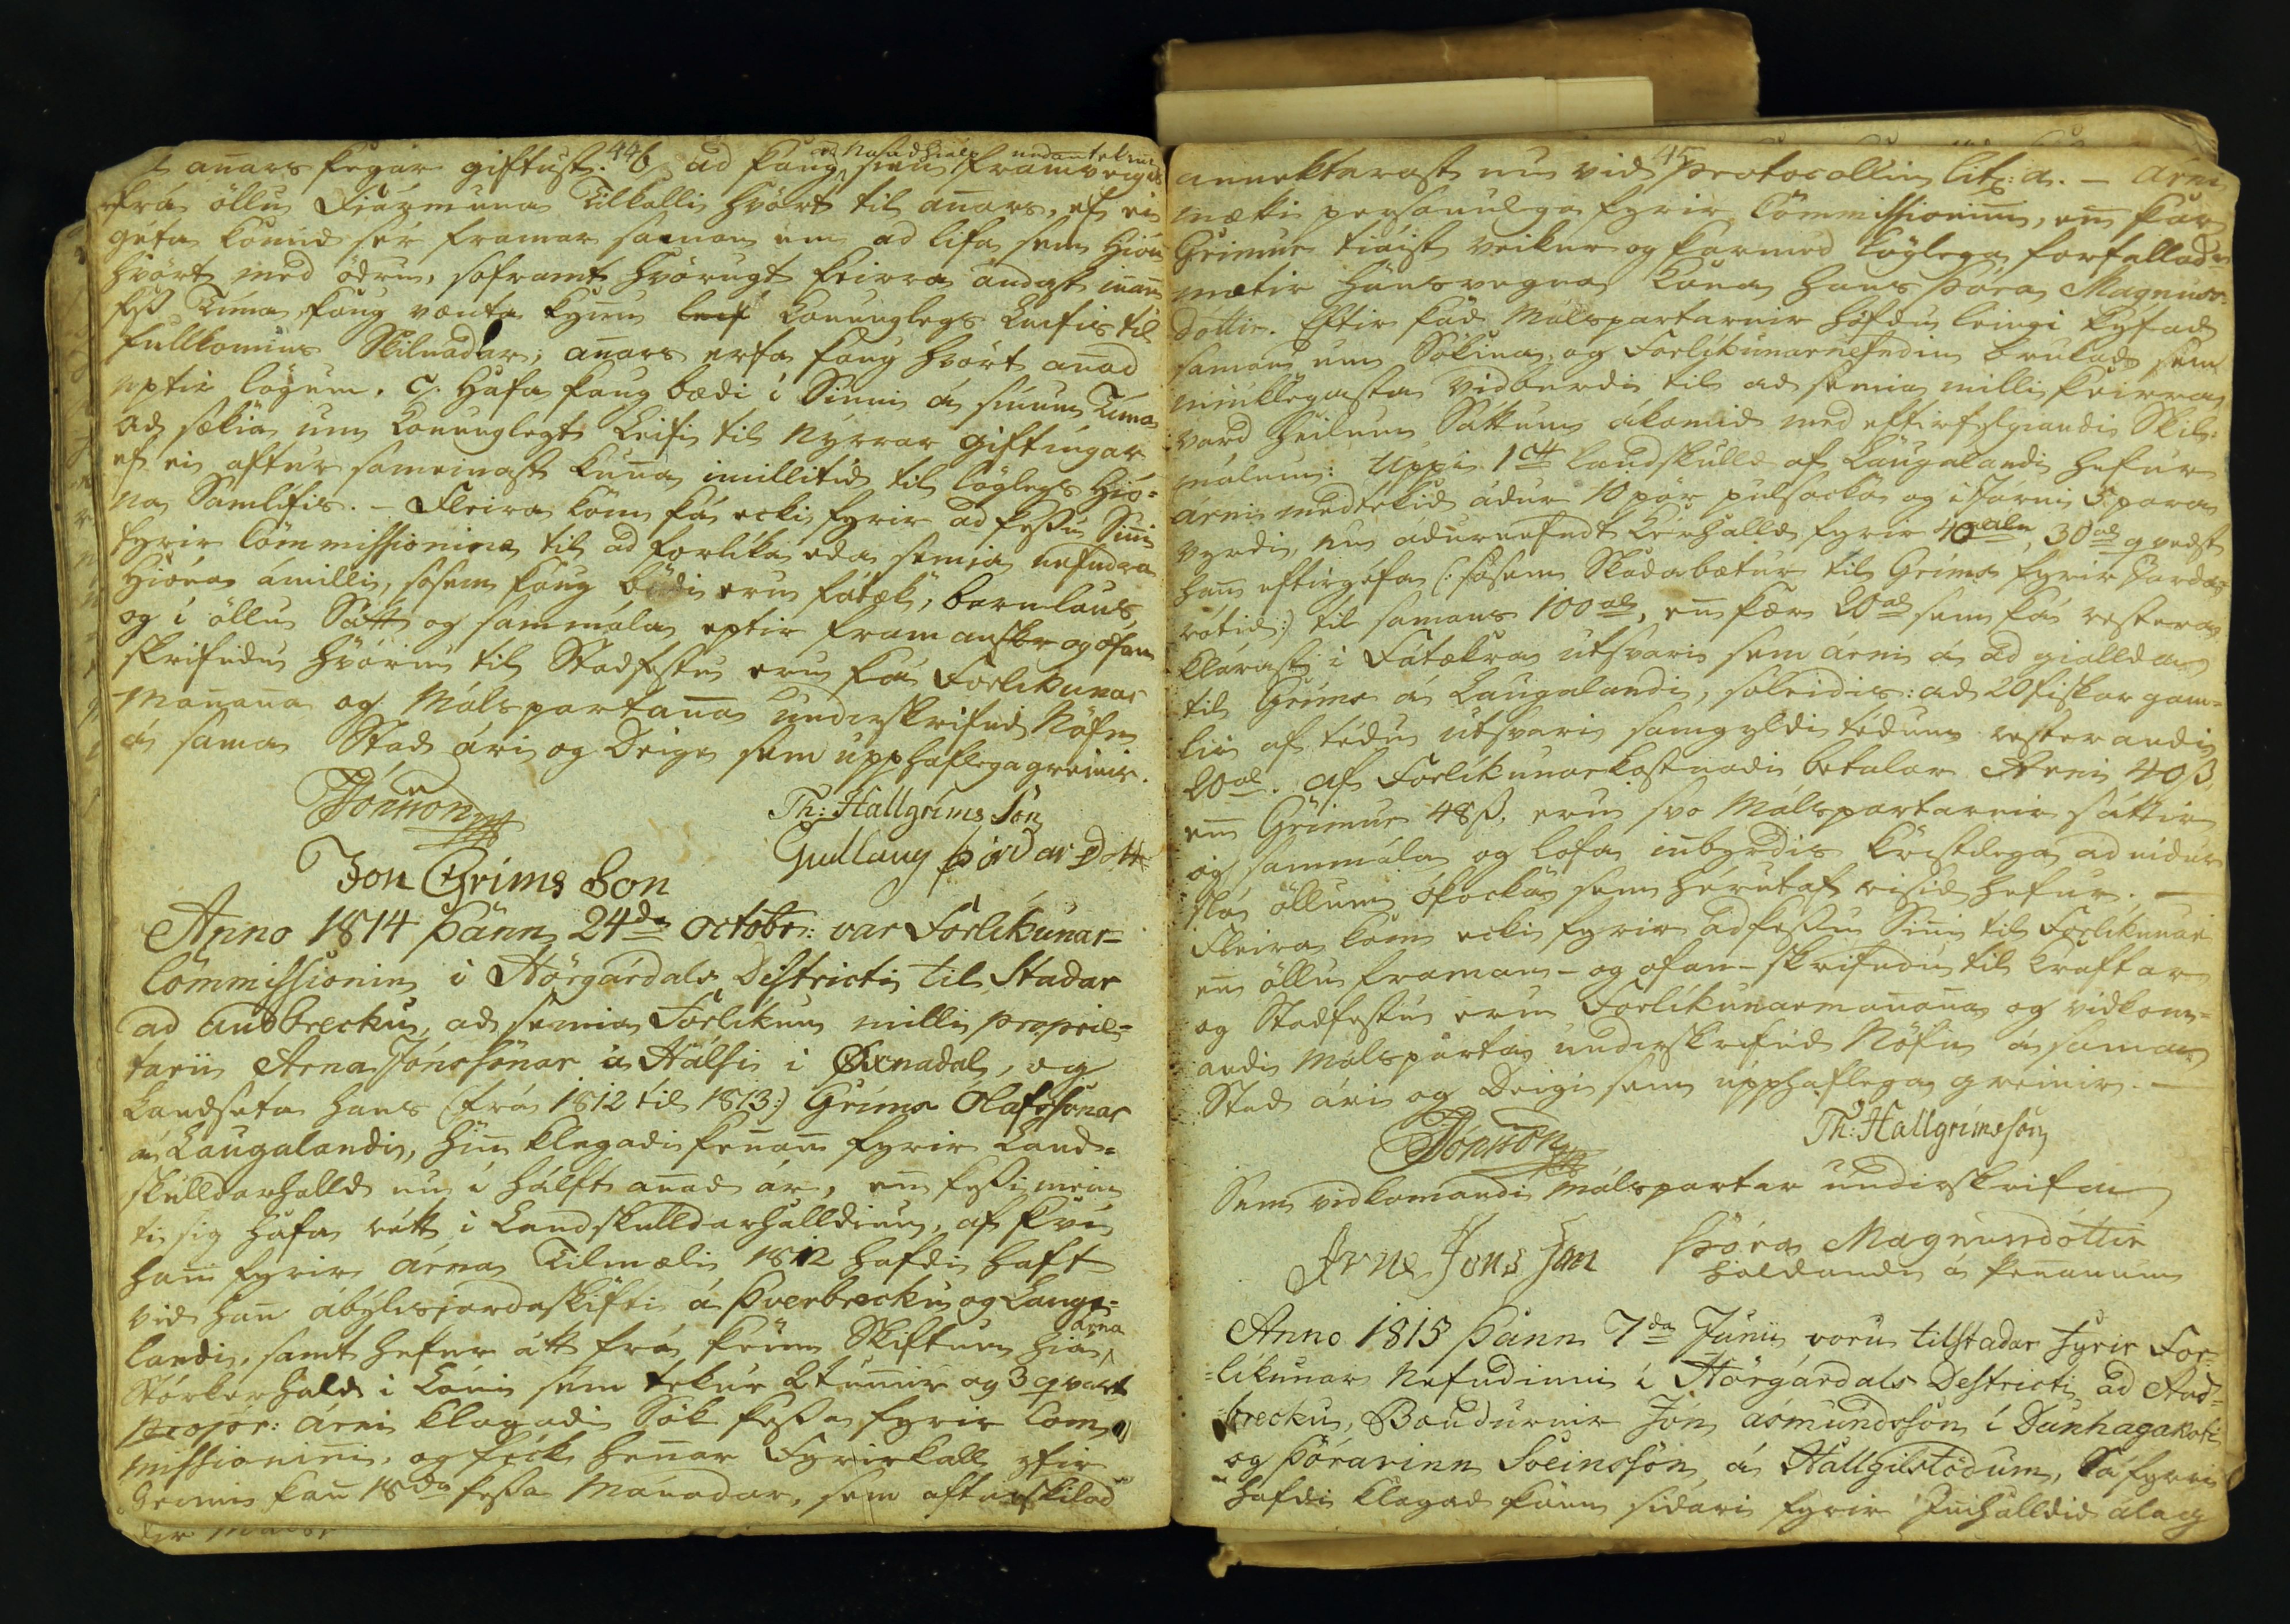 44
anars þegar giftust. b, ad þaug, sieu framvegis
og Nafnd hialp undantekine
frá öllu Fiármuna Tilkalli hvört til anars, ef ei
geta komid sér framar saman um ad lifa sem Hión
hvört med ödru, soframt hvörugt þeirra andast inan
þess Tima þaug vænta kynu Konunglegs Leifis til
fullkomins Skilnadar; anars erfa þaug hvört anad
eptir lögum. c, Hafa þaug bædi i Sinni á sinum Tima
ad sækia um Konunglegt Leifi til Nýrrar Giftingar
ef ei aftur samernast kuna imillitid til löglegs Hió-
na Samlifis. - Fleira kom þá ecki fyrir ad þessu Sinni
fyrir Commissionina til ad forlika eda semia nefndra
Hióna ámilli, sosem þaug bædi eru fátæk, barnlaus,
og i öllu Sátt og sammála eptir framanskr og ofan
skrifudu hvöriu til Stadfestu eru þá Forlikunar
Manana og Málspartana underskrifud Nöfn
á sama Stad ári og Deige sem upphaflega greinir.
Jónsson
Th: Hallgrims Son
Gudlaug Þórdar Dotter
Jon Grims Son
Anno 1814 Þann 24da Octobr: var Forlikunar-
Commissionin i Hörgárdals Districti til Stadar
ad Audbrecku, ad semia Forlikun milli propriè-
tarii Arna Jónssonar á Hálsi i Øxnadal, og
Landseta hans (frá 1812 til 1813:) Grims Olafssonar
á Laugalandi, hin klagadi þenan fyrir Land-
skulldarhalld nu i hálft anad ár, en þessi mein
ti sig hafa rétt i Landskulldarhalldinu, af þvi
han fyrir Árna Tilmæli 1812 hafdi haft
vid han ábýlisjardaskifti á Þverbrecku og Lauga-
landi, samt hefur átt frá þeim Skiftum hiá Árna
Störkerhald i Láni sem tekur 2 tunur og 3 qvart
Árni klagadi Sök þessa fyrir Com
missionini, og feck henar Fyrirkall yfir
Grimi þan 18da þessa Mánadar, sem afturskilad
45
annektarast nu vid Protocollin lit: a. - Arni
mætti persónulega fyrir Commissionini, en þar
Grimur tiáist veikur og þarmed löglega forfallad
mætir hansvegna Kona hans Þóra Magnus-
dottir. Eftir þad Málspartarnir höfdu leingi þyfad
saman um Sökina, og Forlikunarnefndin brukad sem
miuklegasta Vidburdi til ad semia milli þeirra
vard heilum Sáttum ákomid med eftirfylgiandi Skil-
málum: Uppi 1 Landskulld af Laugalandi hefur
Árni medtekid ádur 10 pör pulsocka og i Járni 5 para
Virdi, nu ádurnefndt Kérhalld fyrir 40 aln, 30 al qvedst
han eftirgefa (: sosem Skadabætur til Grims fyrir Jarda
rótid:) til samans 100 al, en þær 20 al sem þá restera
klárast i Fátækra utsvari sem Árni á ad giallda
til Grims á Laugalandi, soleidis: ad 20 fiskar gam-
lir af tédu utsvari samgyldi tédum resterandi
20 al. af Forlikunarkostnadi betalar Arni 40 ß,
en Grimur 48 ß, eru svo Málspartarnir sáttir
og sammála og lofa inbyrdis kristilega ad nidur
slá öllum óþocka sem hérutaf risid hefur. -
Fleira kom ecki fyrir ad þessu Sinni til Forlikunar
en öllu framan- og ofan-skrifudu til Kraftar
og Stadfestu eru Forlikunarmanana og vidkom-
andi Málsparta underskrifud Nöfn á sama
Stad ári og Deigi sem upphaflega greinir. -
Jónsson
Th: Hallgrimsson
Sem vidkomandi málspartar undirskrifa
Arne Jons Son
Þóra Magnusdóttir
haldandi á Penanum
Anno 1815 Þann 7da Junii voru tilstadar fyrir For-
likunar Nefndinni i Hörgárdals Districti ad Aud-
brecku, Bændurnir Jón Asmundsson i Dunhagakoti
og Þórarinn Sveinsson á Hallgilstödum, Sá fyrri
hafdi klagad þann sidari fyrir Inihalldid álag